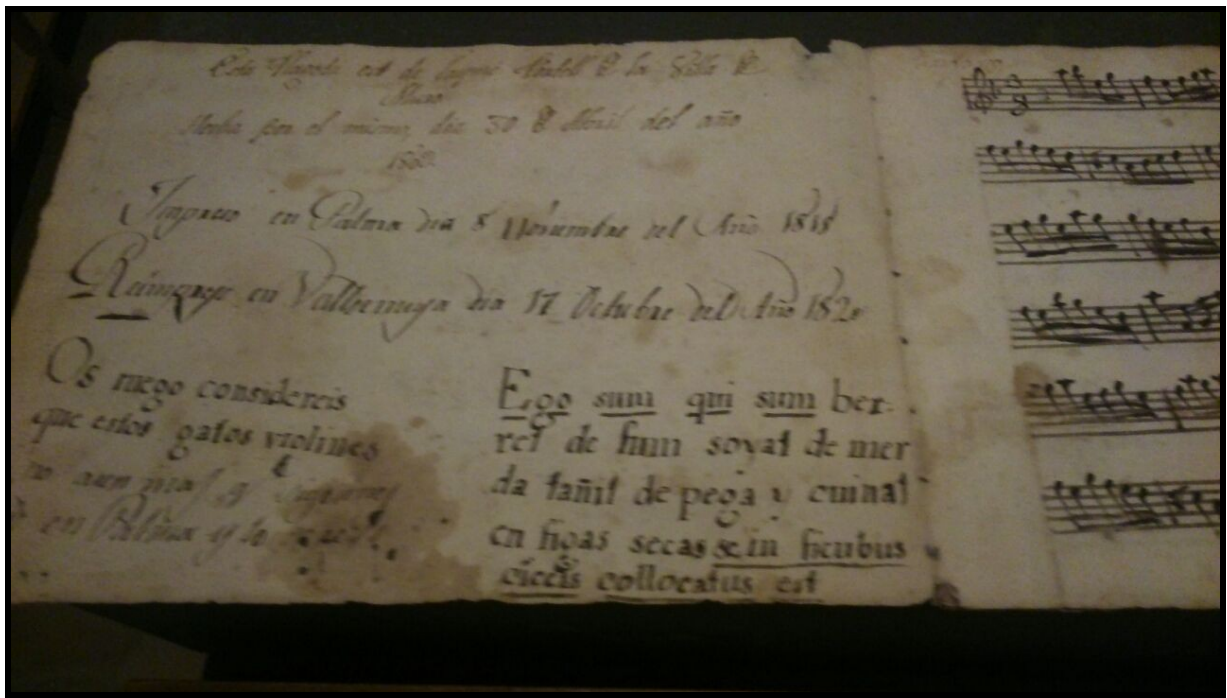 Esta est de la Villa de
Muro
por el mismo dia 30 de Abril del año
Impreso en Palma dia 8 Noviembre del Año 1818
Reimpreso en Valldemuza dia 17 Octubre del Año
Os ruego considereis
que estos gatos violines
no aun mas y
en Palma y lo
Ego sum qui sum ber-
ret de fum soyat de mer
da tañit de pega y cuinat
en figas secas se in ficubus
siccis collocatus est